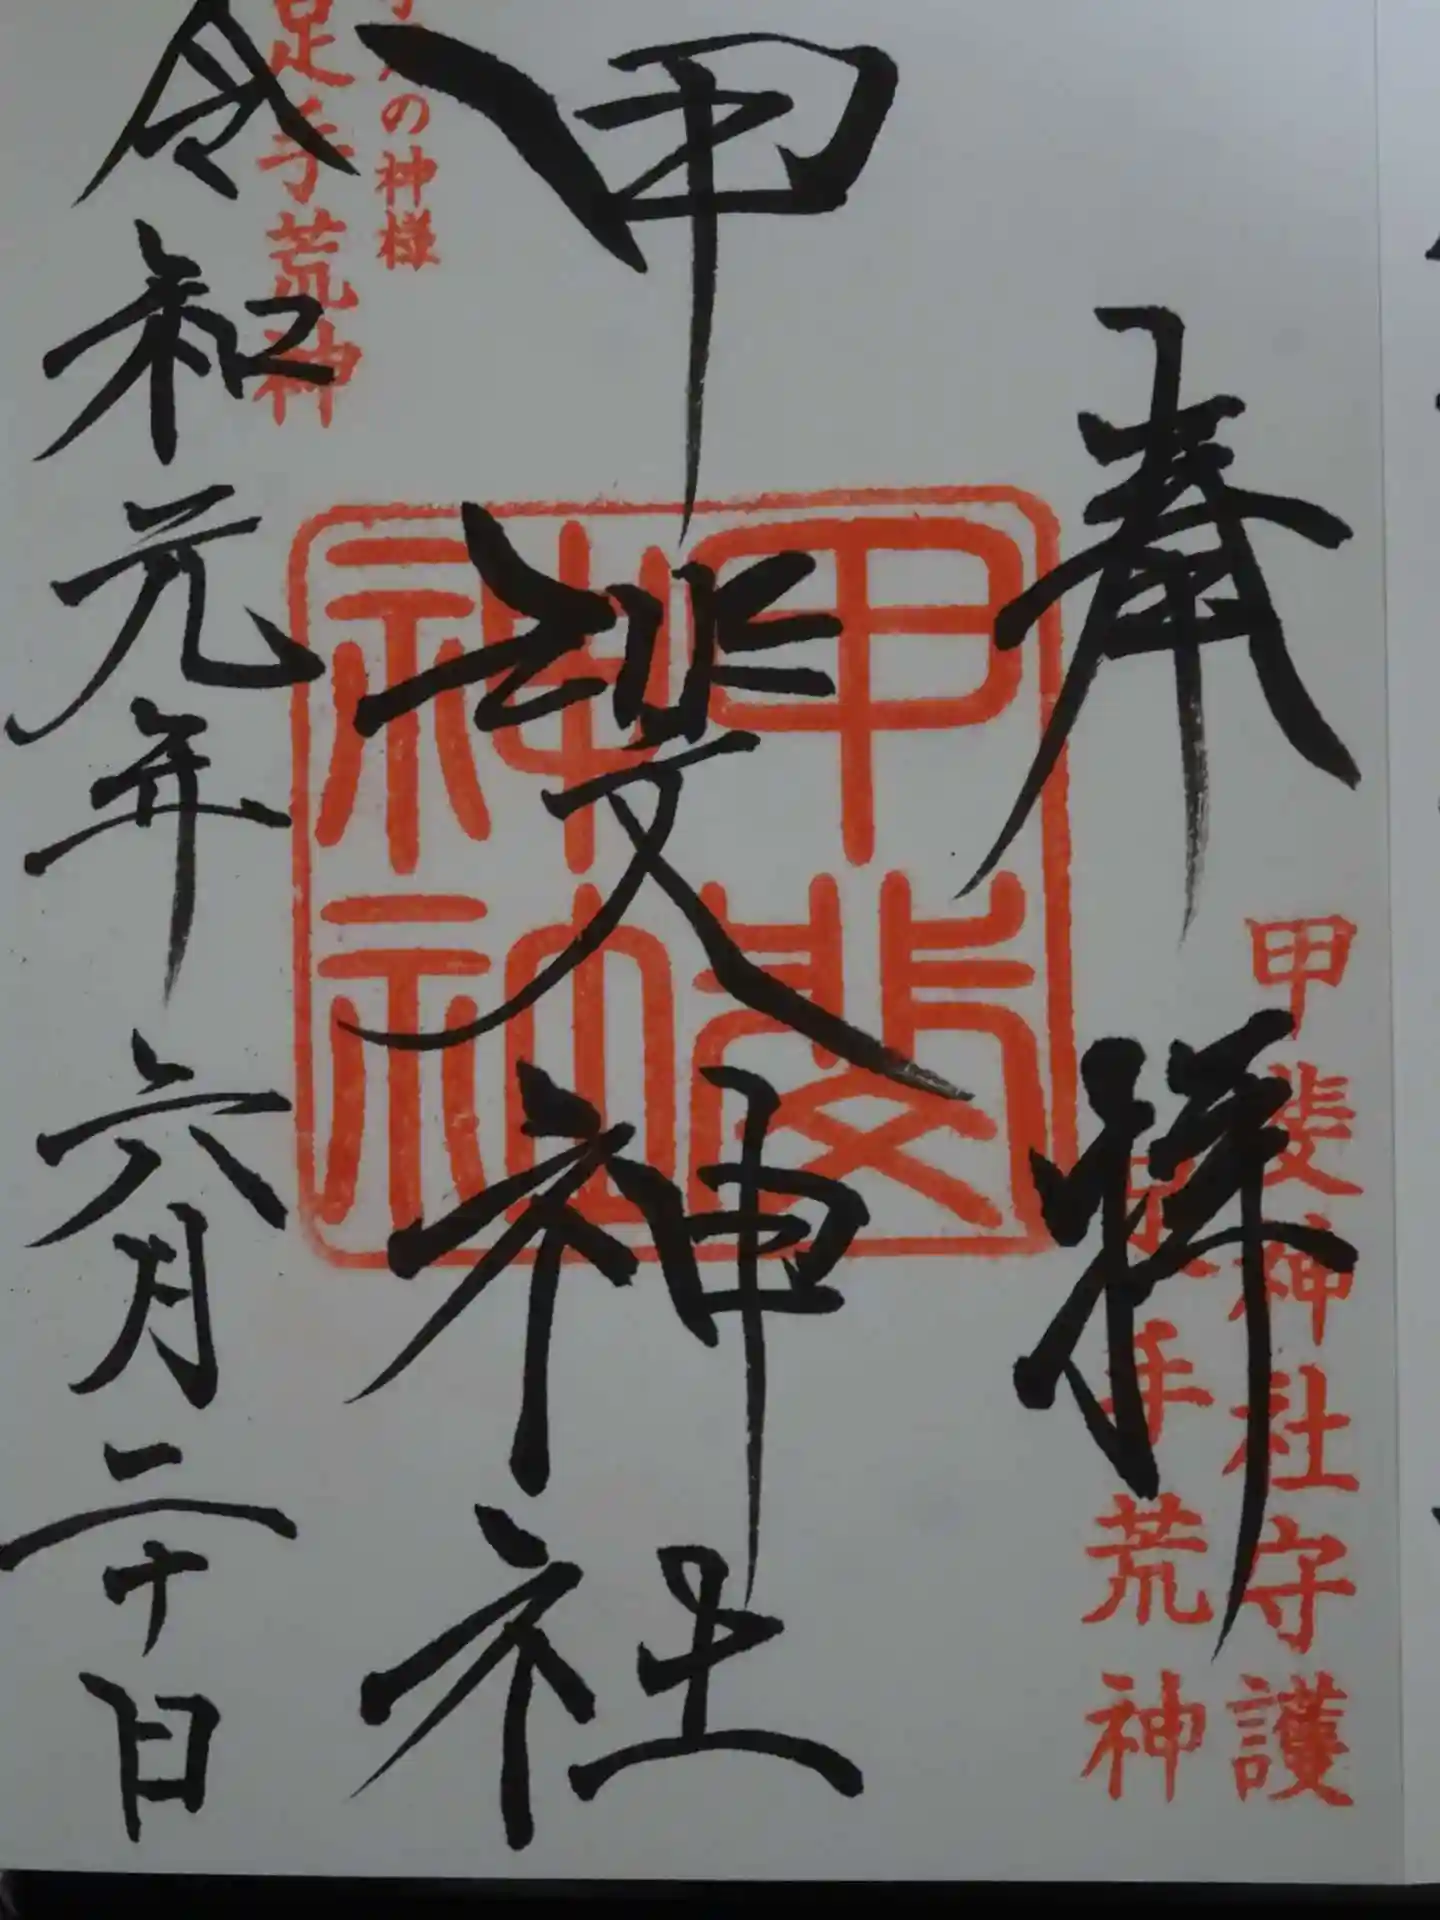 奉拝
甲斐神社守護
足手荒神
甲斐神社
甲斐
神社
の神様
足手荒神
令和元年六月二十日